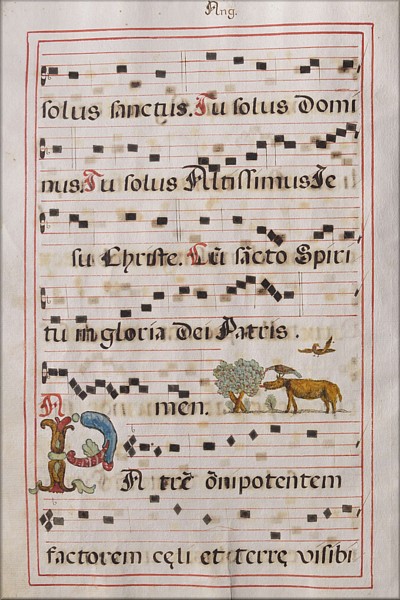 Ang.
solus sanctus. Tu solus Domi
nus. Tu solus Altissimus Ie
su Christe. Cū sācto Spiri
tu in gloria Dei Patris.
A men.
PAtrē ōnipotentem
factorem cęli et terrę visibi